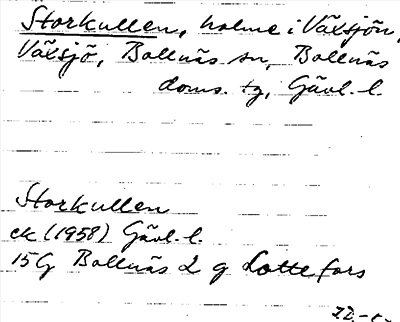 Storkullen, holme i Växsjön,
Växsjö, Bollnäs sn, Bollnäs
doms. tg, Gävl. l.
Storkullen
ek (1958) Gävl. l.
15G Bollnäs 2 g Lottefors